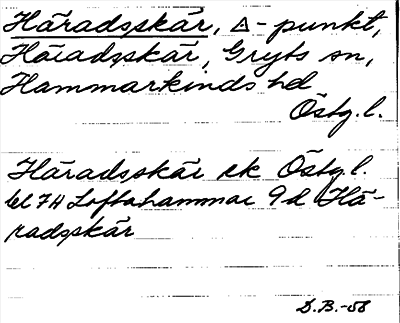 Häradsskär, △-punkt,
Häradsskär, Gryts sn,
Hammarkinds hd
Östg.l.
Häradsskär ek Östg.l.
bl 7H Loftahammar 9d Hä-
radsskär
S.B.-58